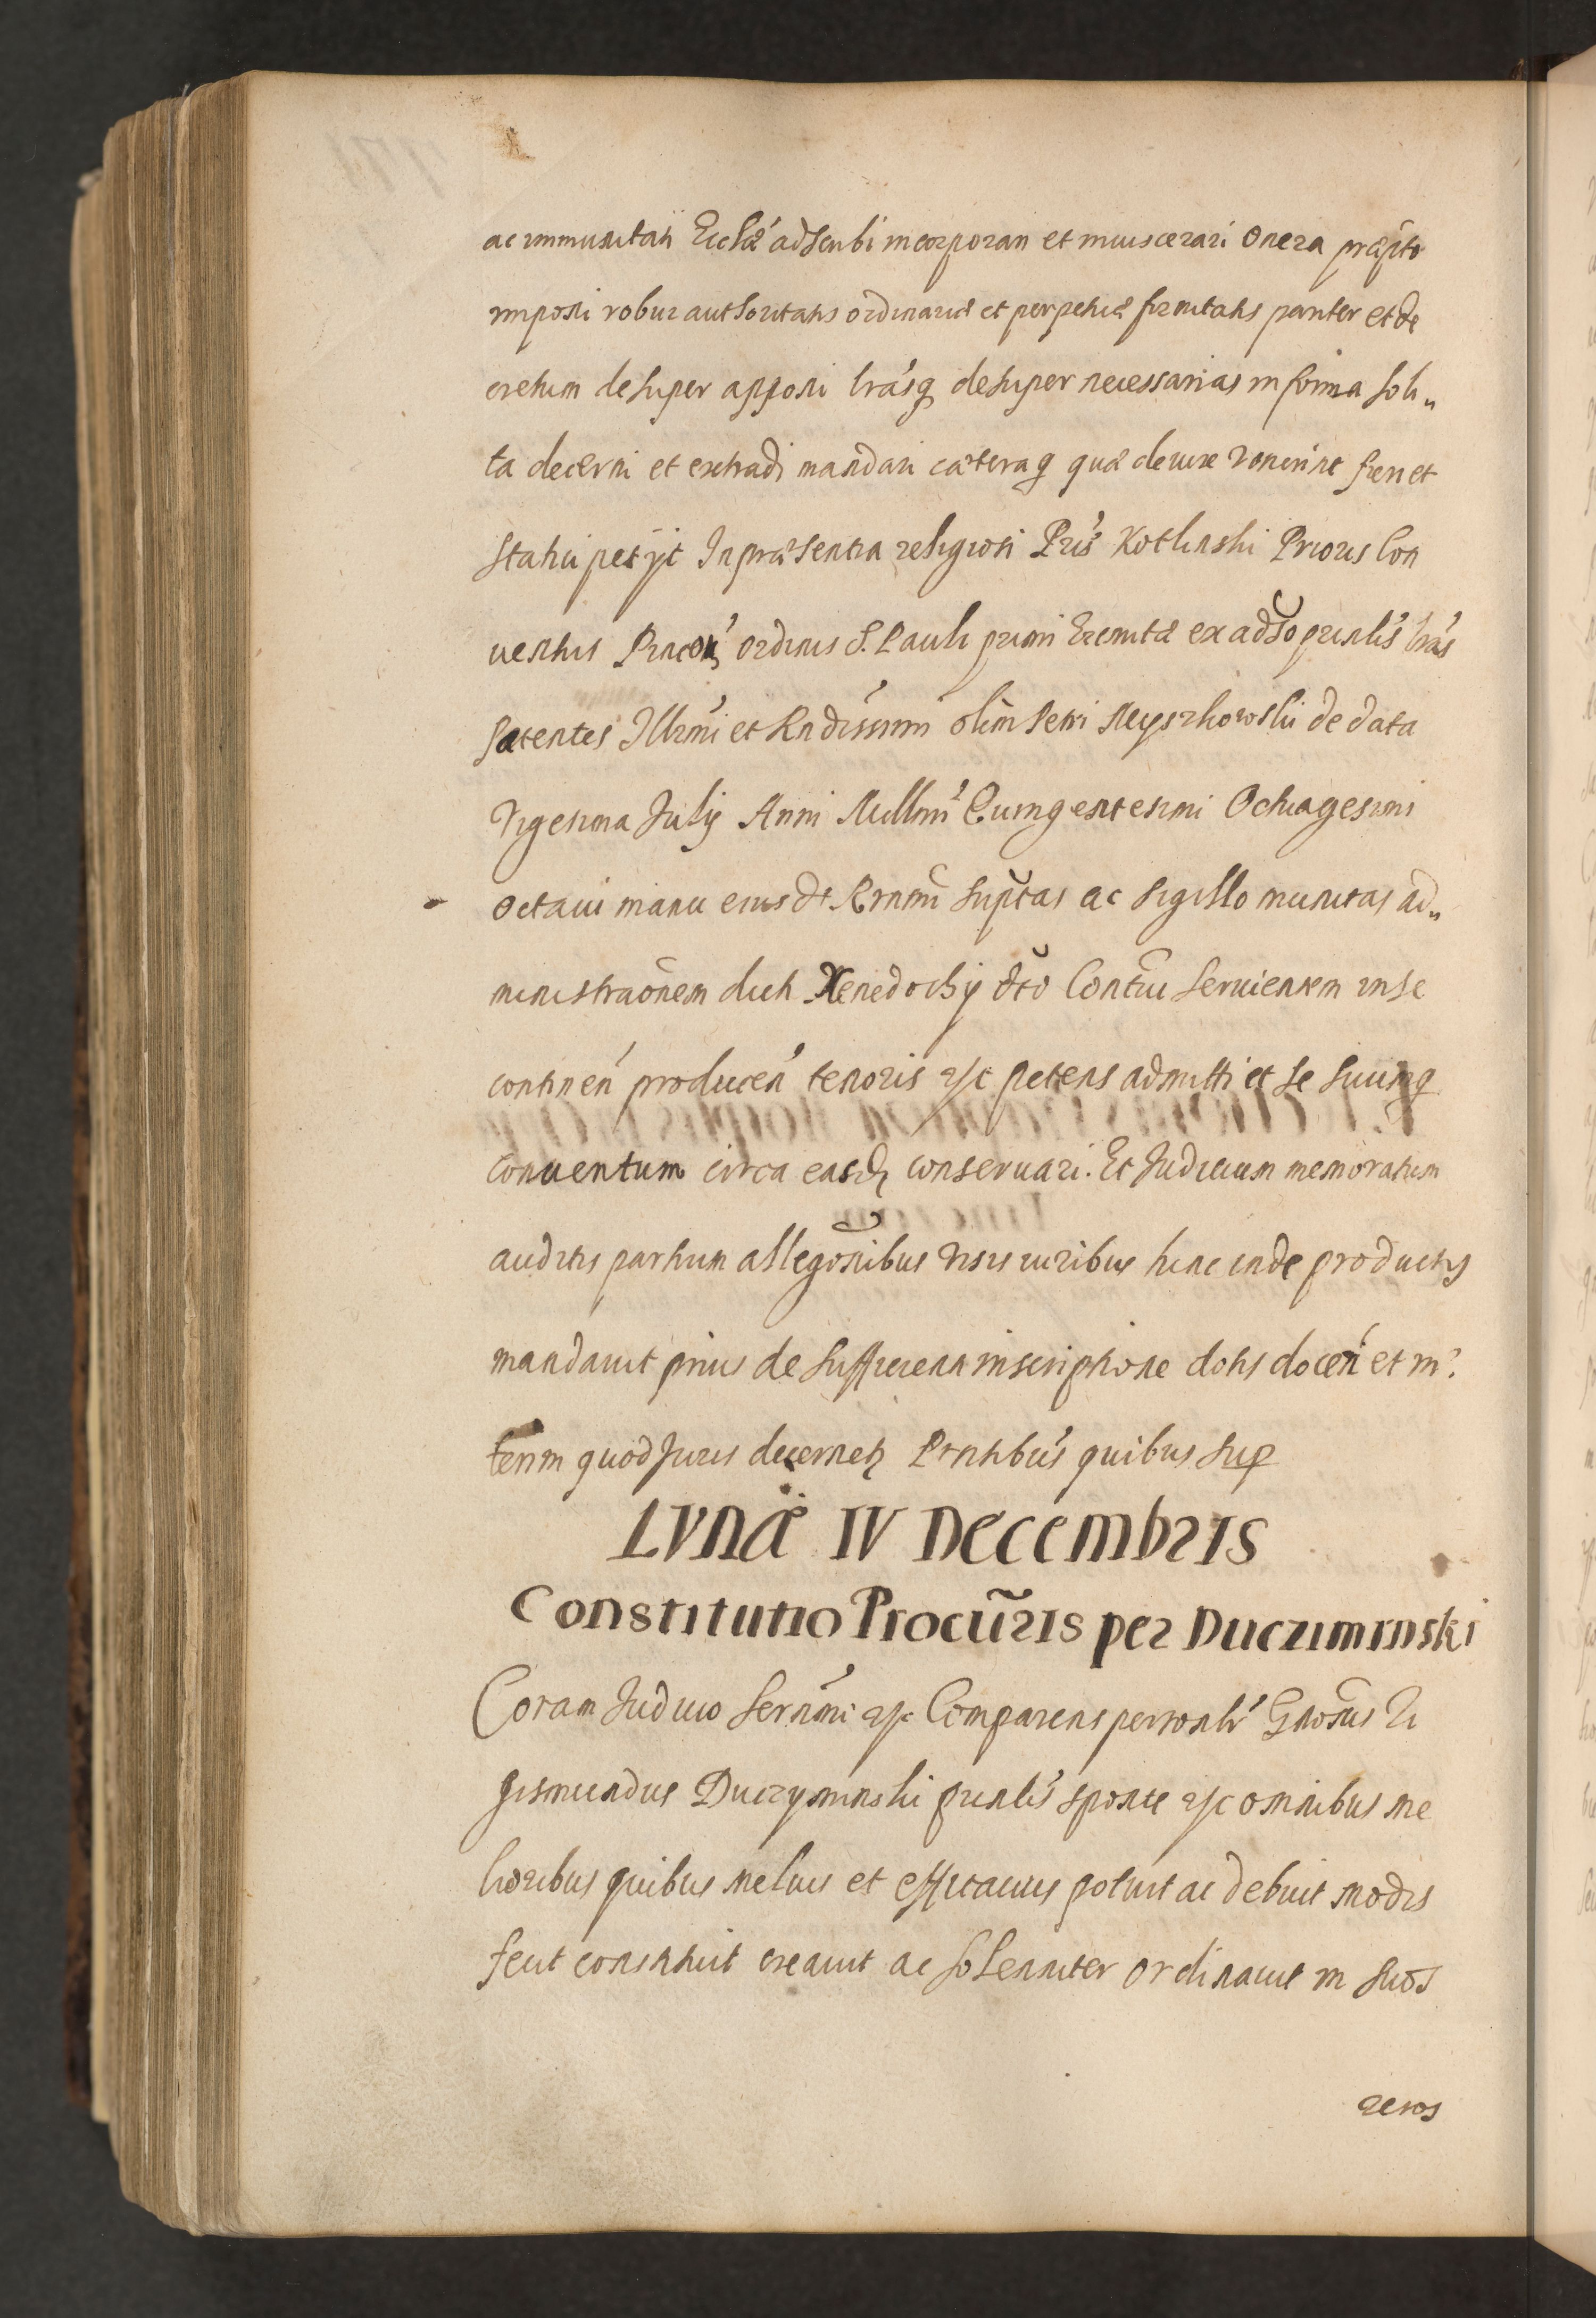 ac immunitati Ecclæ adscribi incorporari et inuiscerari Onera præpto
imponi robur authoritatis ordinariæ et perpetuæ firmitatis pariter et de
cretum desuper apponi lrasq desuper necessarias in forma soli„
ta decerni et extradi mandari cæteraq quæ de iure venerint fieri et
statui petijt In præsentia religiosi Pris Kotlinski Prioris Con
uentus Pincou ordinis S. Pauli primi Eremitæ ex aduso prnlis lras
patentes Illrmi et Rndissimi olim Petri Myszkowski de data
Vigesima Julij Anni Millmi Quingentesimi Octuagesimi
octaui manu eiusdt Rmi suptas ac sigillo munitas ad„
ministraonem dicti Xenedochij dto Contui seruientem in se
continen producen tenoris etc petens admitti et se suumq
conuentum circa easd conseruari. Et Judicium memoratum
auditis partium allegonibus visis iuribus hinc inde productis
mandauit prius de sufficienti inscriptione dotis doceri et in
terim quod Juris decernet Prntibus quibus sup
LVNÆ IV Decembris
Constitutio Procuris per Ducziminski
Coram Judicio Sernmi etc Comparens personlr Gnosus Zi
gismundus Duczyminski prnlis sponte etc omnibus me
lioribus quibus melius et efficacius potuit ac debuit modis
fecit constituit creauit ac solenniter ordinauit in suos
ueros